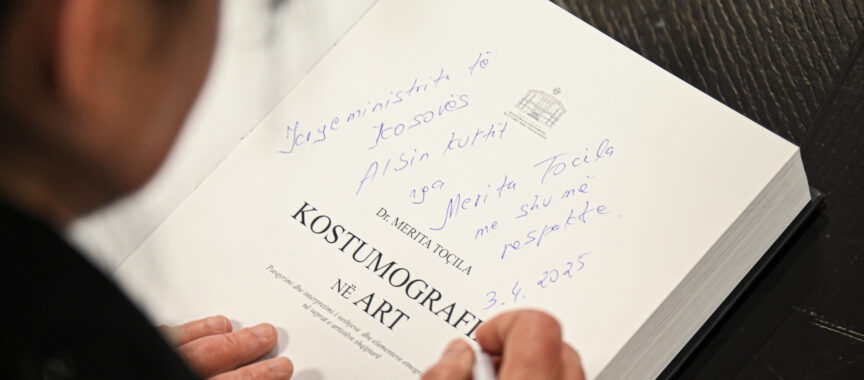 Kryeministrit të
Kosovës
Albin Kurtit
nga
Merita Tocila
me shumë
respekte.
3.4.2025
Dr. MERITA TOÇILA
KOSTUMOGRAFI
NË ART
Pasqyrimi dhe interpretimi i veshjeve dhe elementeve
në veprat e artistëve shqiptarë